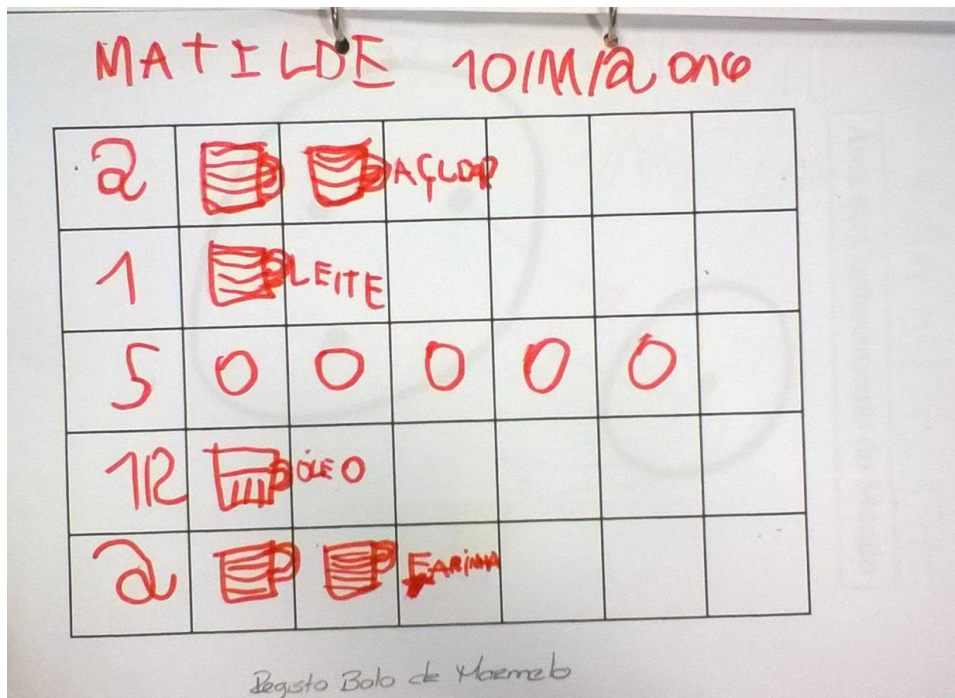 MATILDE
2 AÇUCAR
1 LEITE
5
1/2 ÓLEO
2 FARINHA
Registo Bolo de Marmelo